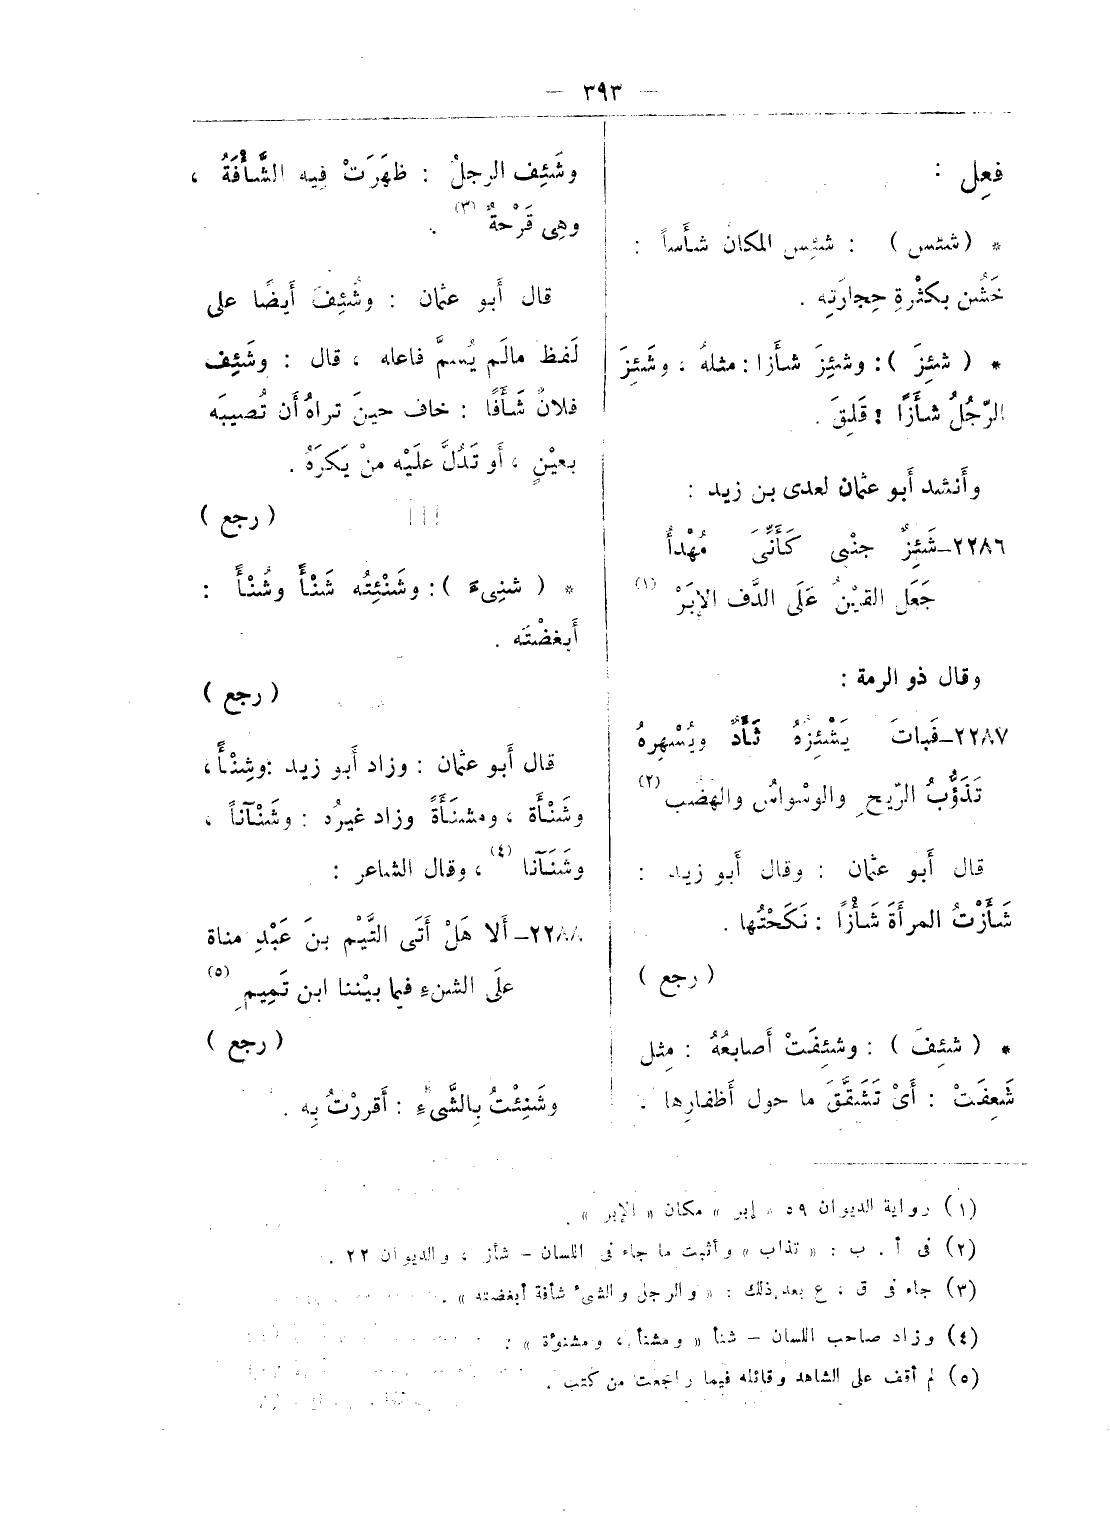 — ٣٩٣ —
فعِل :
* ( شئس ) : شئِس المكانُ شأَساً :
خَشُن بكثْرةِ حِجارَتِه .
* ( شئِزَ ) : وشئِزَ شأَزا : مثلهُ ، وشَئِزَ
الرّجُلُ شأَزًا : قَلِقَ .
وأَنشد أَبو عثمان لعدى بن زيد :
٢٢٨٦–شَئِزٌ جنْبِى كَأَنِّىَ مُهْدأٌ
جَعَل القَيْنُ عَلَى الدَّف الإبَرْ (١)
وقال ذو الرمة :
٢٢٨٧–فَباتَ يَشْئِزُهُ ثَأَدٌ ويُسْهِرهُ
تَذَؤُّبُ الرّيح ِ والوسْواسُ والهضَب (٢)
قال أَبو عثمان : وقال أَبو زيد :
شَأَزْتُ المرأَةَ شَأْزًا : نَكَحْتُها .
( رجع )
* ( شئِفَ ) : وشئِفَتْ أَصابعُهُ : مِثل
شَعِفَتْ : أَىْ تَشَقَّقَ ما حول أَظفارِها .
وشَئِف الرجلُ : ظهَرَتْ فيه الشَّأْفَةُ ،
وهِى قَرْحةٌ (٣) .
قال أَبو عثمان : وشُئِفَ أَيضًا على
لَفظ مالَم يُسمَّ فاعله ، قال : وشَئِف
فلانٌ شَأَفًا : خاف حينَ تراهُ أَن تُصيبَه
بعيْنٍ ، أَو تَدُلَّ علَيْه منْ يَكرَهُ .
( رجع )
* ( شنِىءَ ) : وشَنْئِتُه شَنْأً وشُنْأً :
أَبغضْتَه .
( رجع )
قال أَبو عثمان : وزاد أَبو زيد :وشِنْأً ،
وشَنْأَة ، ومشنَأَةً وزاد غيرُه : وشَنْآناً ،
وشَنَآنا (٤) ، وقال الشاعر :
٢٢٨٨–أَلا هَلْ أَتَى التَّيْم بنَ عَبْدِ مناة
علَى الشنءِ فيما بيْننا ابن تَمِيمِ (٥)
( رجع )
وشَنِئْتُ بِالشَّىءِ : أَقررْتُ بِه .
(١) رواية الديوان ٥٩ « إبر » مكان « الإبر » .
(٢) فى أ . ب : « تذاب » وأثبت ما جاء فى اللسان – شأز ، والديوان ٢٢ .
(٣) جاء فى ق ، ع بعد ذلك : « والرجل والشىء شأفة أبغضته » .
(٤) وزاد صاحب اللسان – شنأ « ومشنأ ، ومشنوَّة » :
(٥) لم أقف على الشاهد وقائله فيما راجعت من كتب .